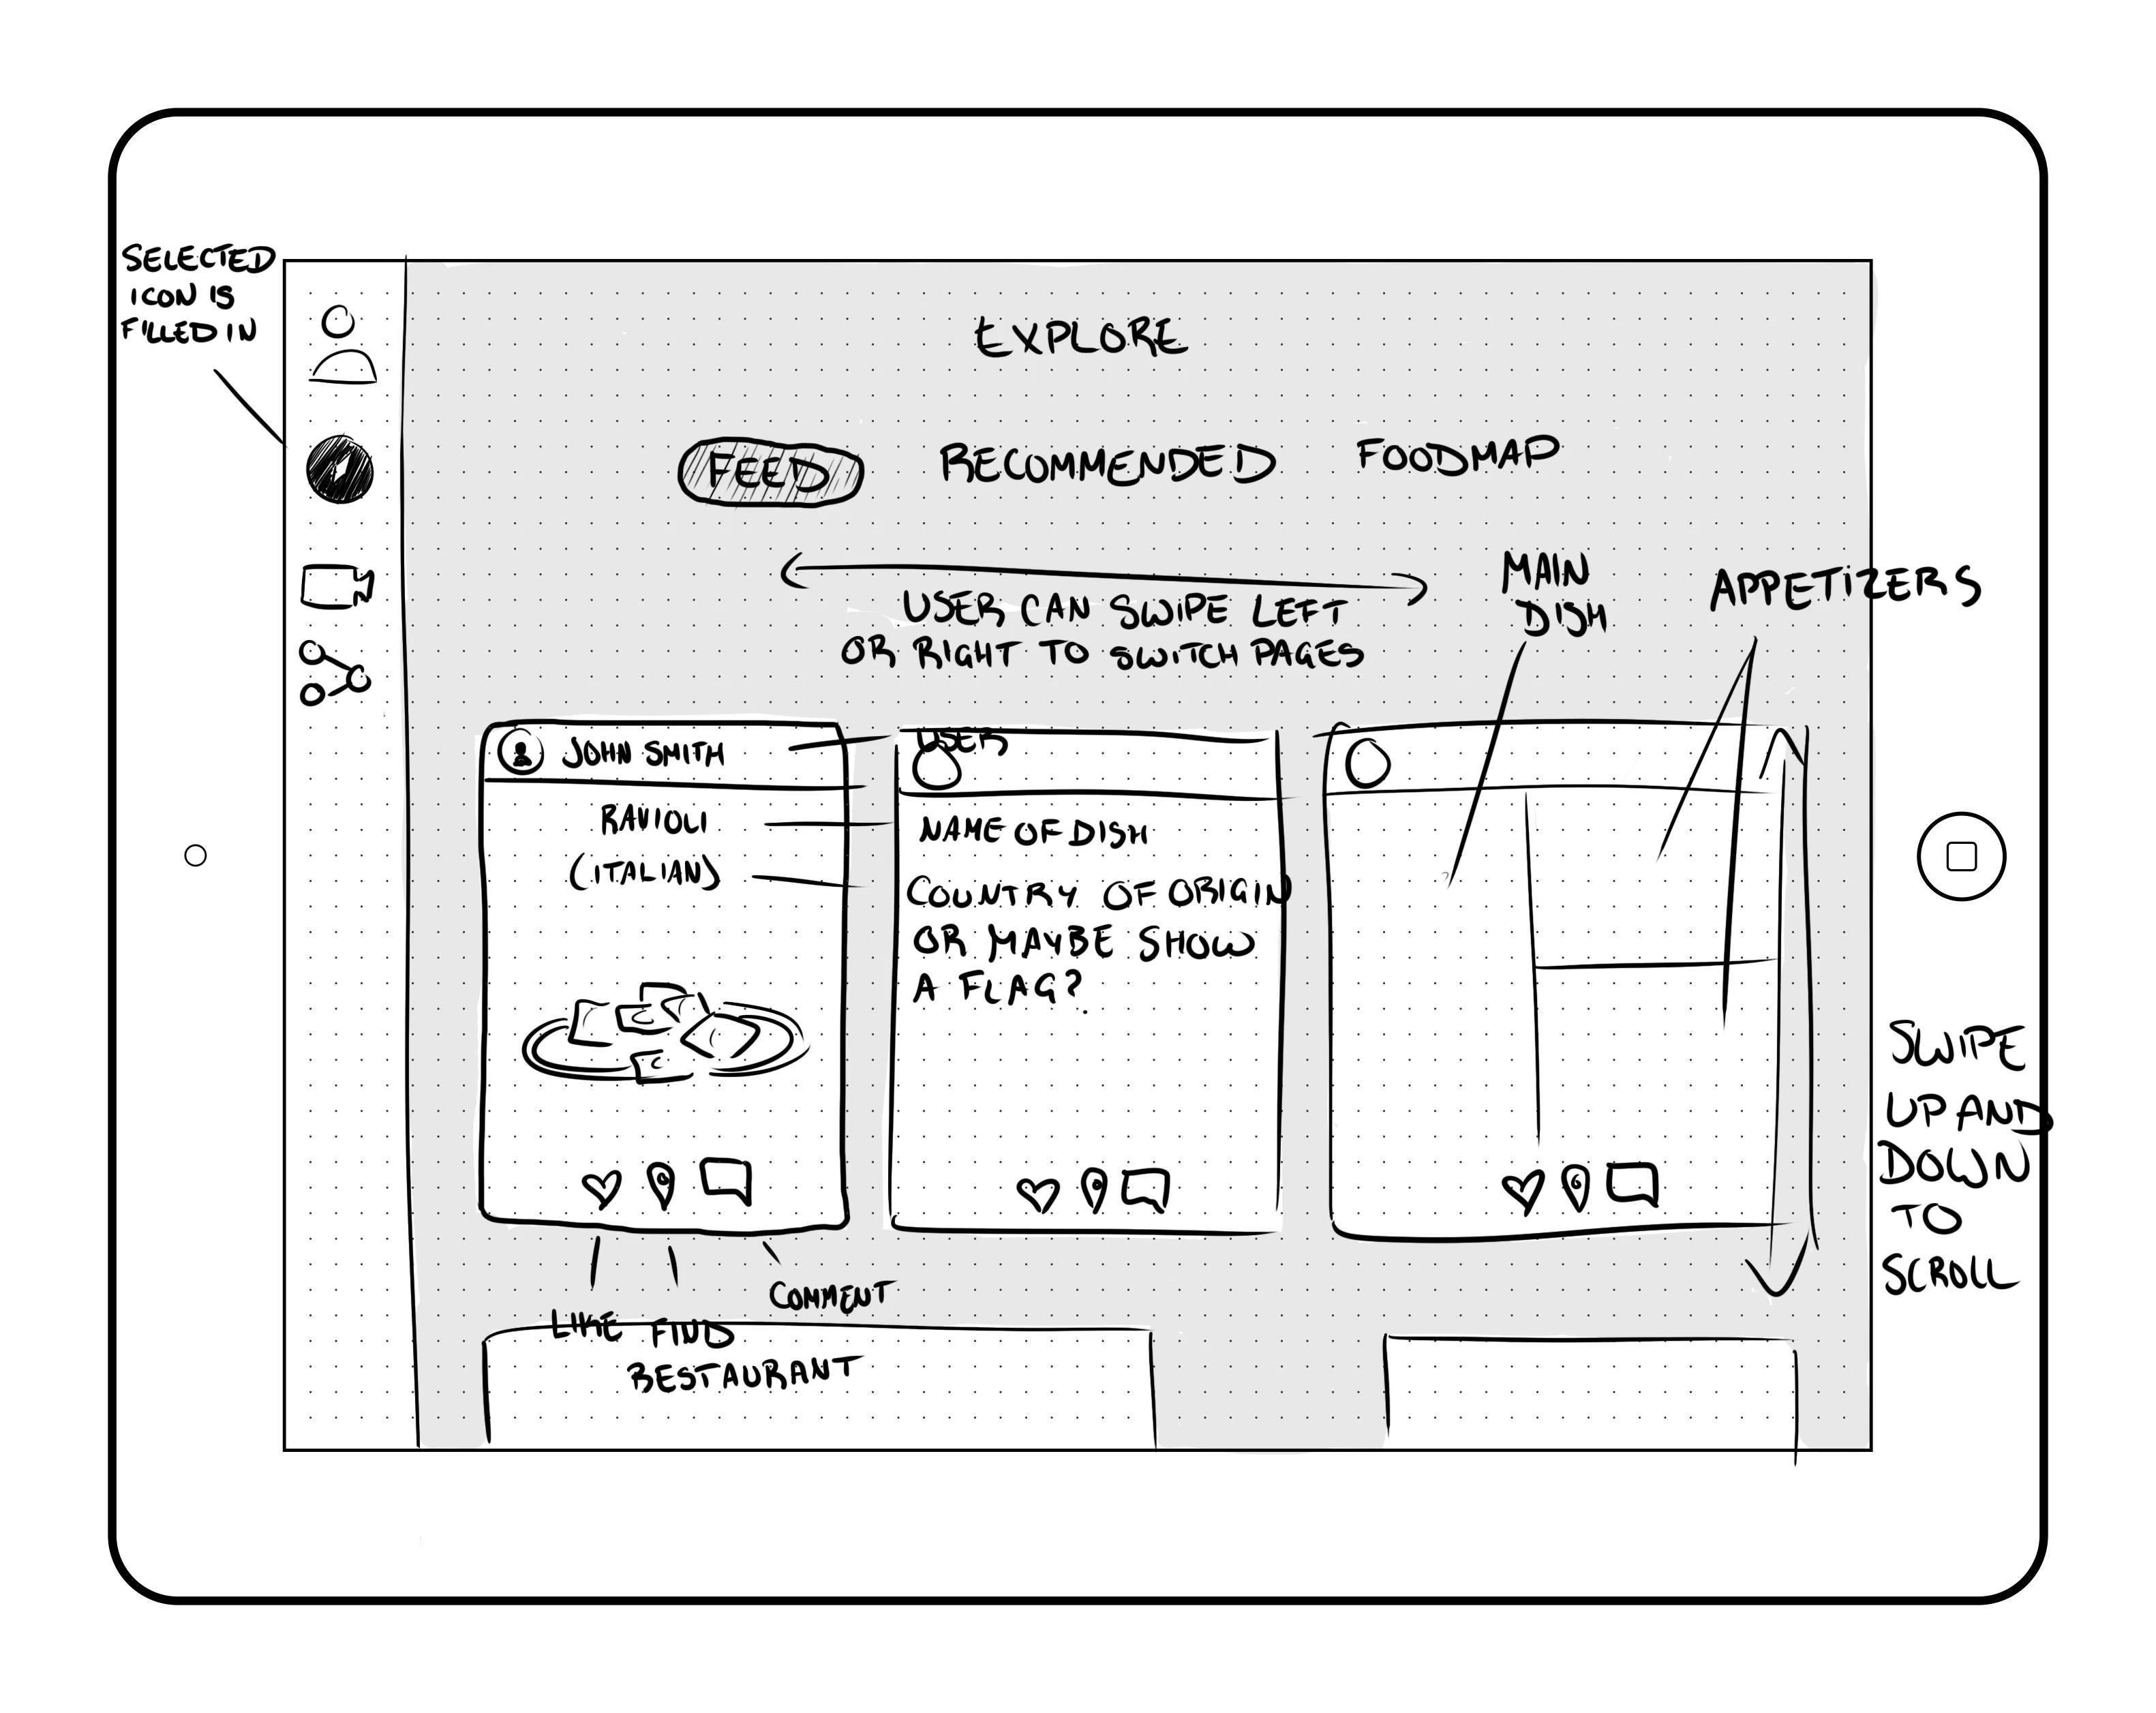 SELECTED
ICON IS
FILLED IN
EXPLORE
FEED
RECOMMENDED
FOODMAP
USER CAN SWIPE LEFT
OR RIGHT TO SWITCH PAGES
MAIN
DISH
APPETIZERS
JOHN SMITH
RAVIOLI
(ITALIAN)
USER
NAME OF DISH
COUNTRY OF ORIGIN
OR MAYBE SHOW
A FLAG?
SWIPE
UP AND
DOWN
TO
SCROLL
LIKE
FIND
RESTAURANT
COMMENT